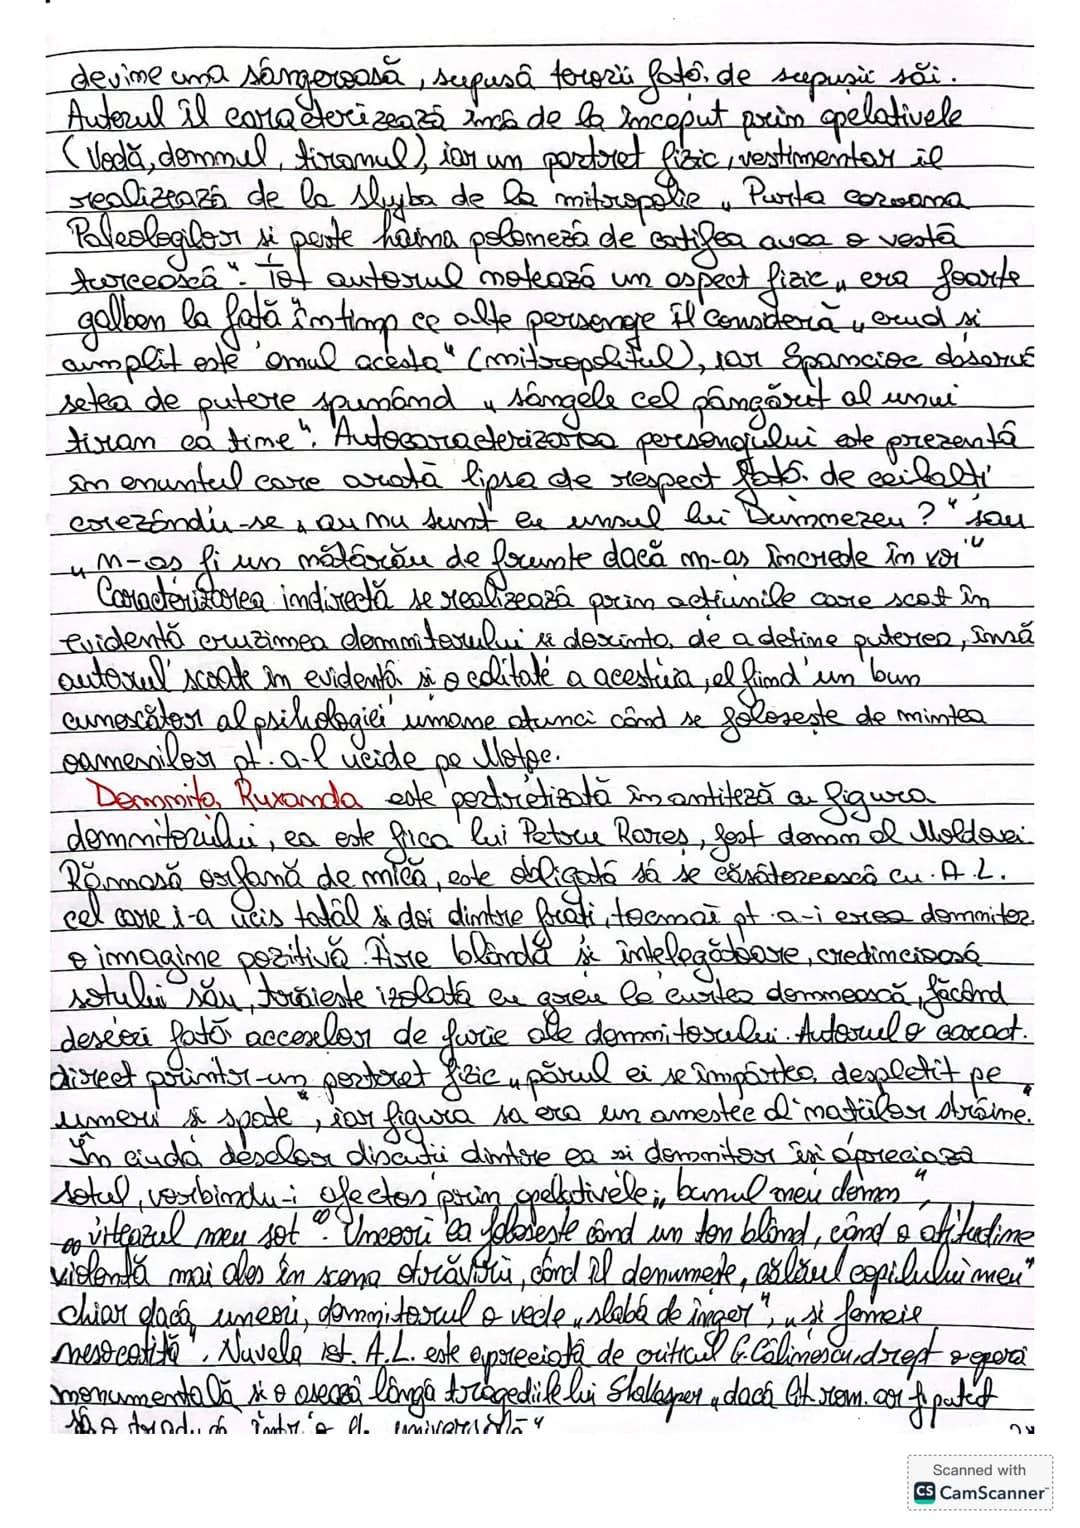 devine una sângeroasă, supusă terorii față de supușii săi.
Autorul îl caracterizează încă de la început prin apelativele
(Vodă, domnul, tiranul), iar un portret fizic, vestimentar îl
realizează de la slujba de la mitropolie „Purta coroana
Paleologilor și peste haina poloneză de catifea avea o vestă
turcească". Tot autorul notează un aspect fizic „era foarte
galben la față în timp ce alte personaje îl consideră „crud și
cumplit este omul acesta" (mitropolitul), iar Spancioc observă
setea de putere spunând „sângele cel pângărit al unui
tiran ca tine". Autocaracterizarea personajului este prezentă
în enunțul care arată lipsa de respect față de ceilalți
crezându-se „au nu sunt eu unsul lui Dumnezeu?" sau
„N-aș fi un nătărău de frunte dacă m-aș încrede în voi"
Caracterizarea indirectă se realizează prin acțiunile care scot în
evidență cruzimea domnitorului și dorința de a deține puterea, însă
autorul scoate în evidență și o calitate a acestuia, el fiind un bun
cunoscător al psihologiei umane atunci când se folosește de mintea
oamenilor pt. a-l ucide pe Moțoc.
Domnița Ruxanda este portretizată în antiteză cu figura
domnitorului, ea este fiica lui Petru Rareș, fost domn al Moldovei.
Rămasă orfană de mică, este obligată să se căsătorească cu A.L.
cel care i-a ucis tatăl și doi dintre frați, tocmai pt. a-i crea domnitor.
o imagine pozitivă. Fire blândă și înțelegătoare, credincioasă
soțului său, trăiește izolată cu greu la curtea domnească, făcând
deseori față acceselor de furie ale domnitorului. Autorul o caract.
direct printr-un portret fizic „părul ei se împărțea despletit pe
umeri și spate", iar figura sa era un amestec „d'mațiilor străine."
În ciuda deselor discuții dintre ea și domnitor își apreciază
soțul, vorbindu-i afectos prin apelativele „bunul meu domn"
„viteazul meu soț". Uneori ea folosește când un ton blând, când o atitudine
violentă mai ales în scena otrăvirii, când îl denumește „călăul copilului meu"
chiar dacă uneori, domnitorul o vede „slabă de înger", „și femeie
nesocotită". Nuvela ist. A.L. este apreciată de criticul G. Călinescu drept o operă
monumentală și o așează lângă tragediile lui Shakesper „dacă lit. rom. ar fi putut
într'o universală"
Scanned with
CS CamScanner